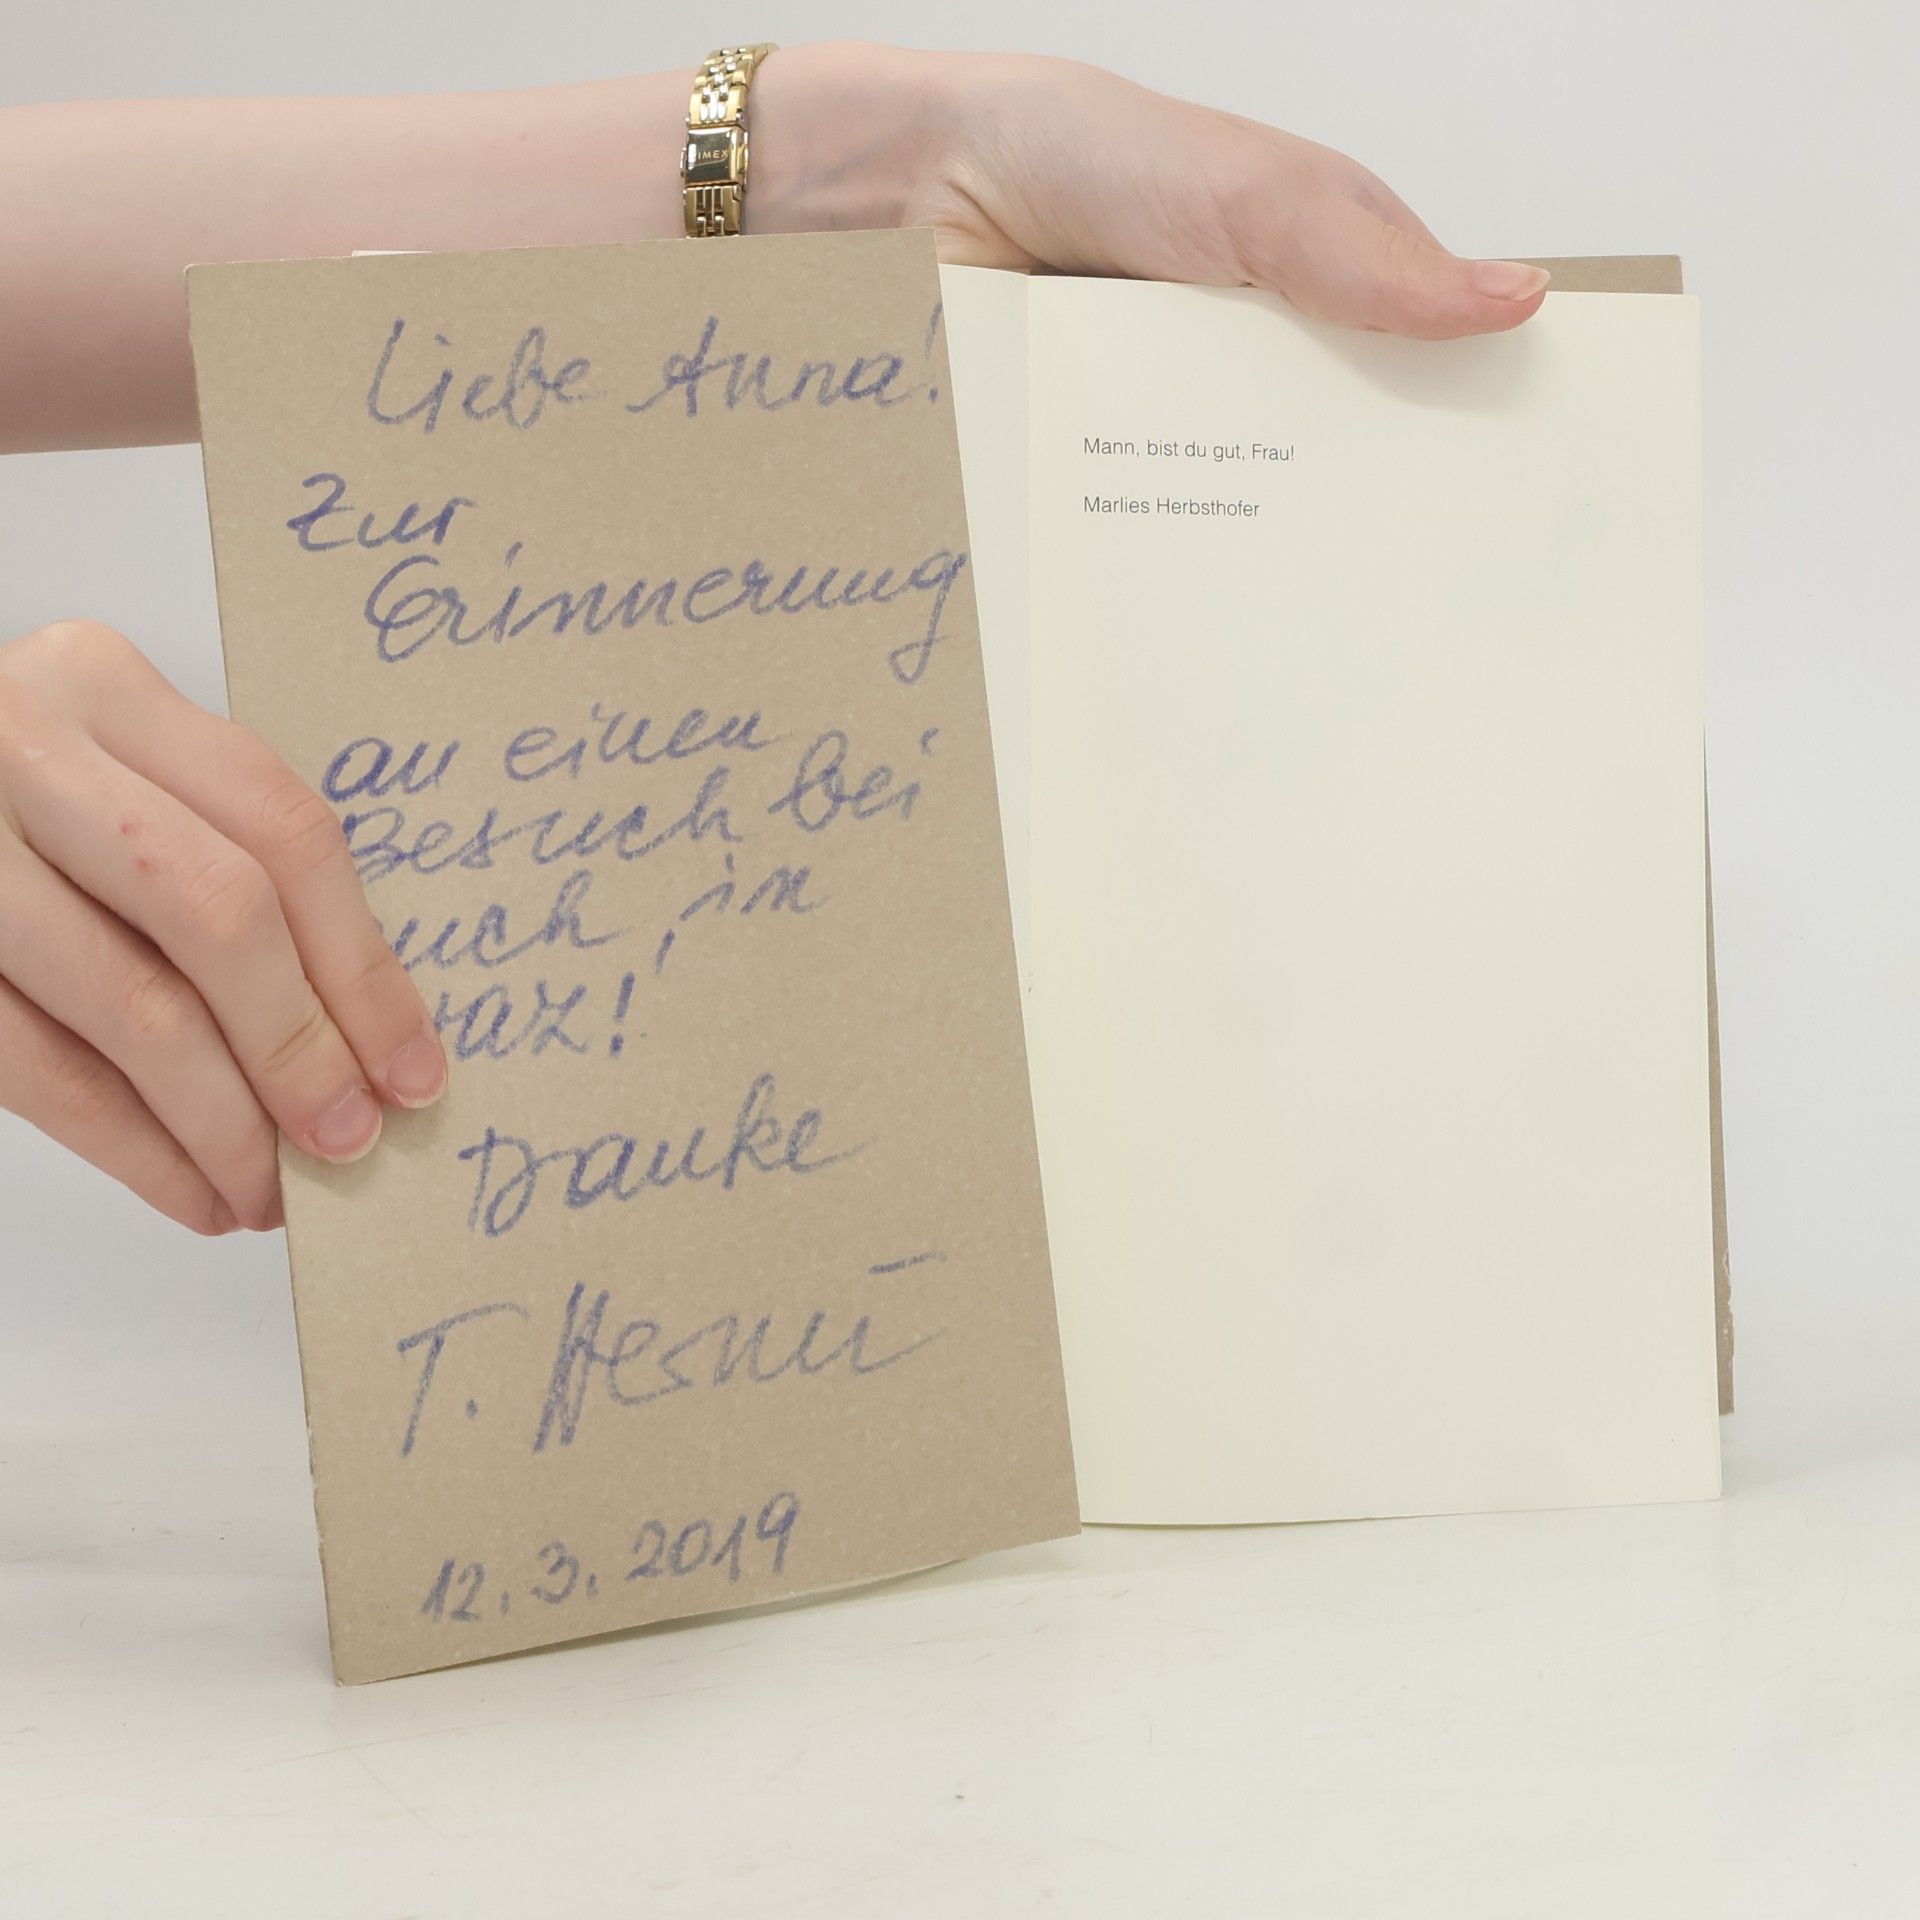 IMEX
Liebe Anna!
Zur
Erinnerung
an einen
Besuch bei
uch, in
raz!
Danke
T.
12.3.2019
Mann, bist du gut, Frau!
Marlies Herbsthofer